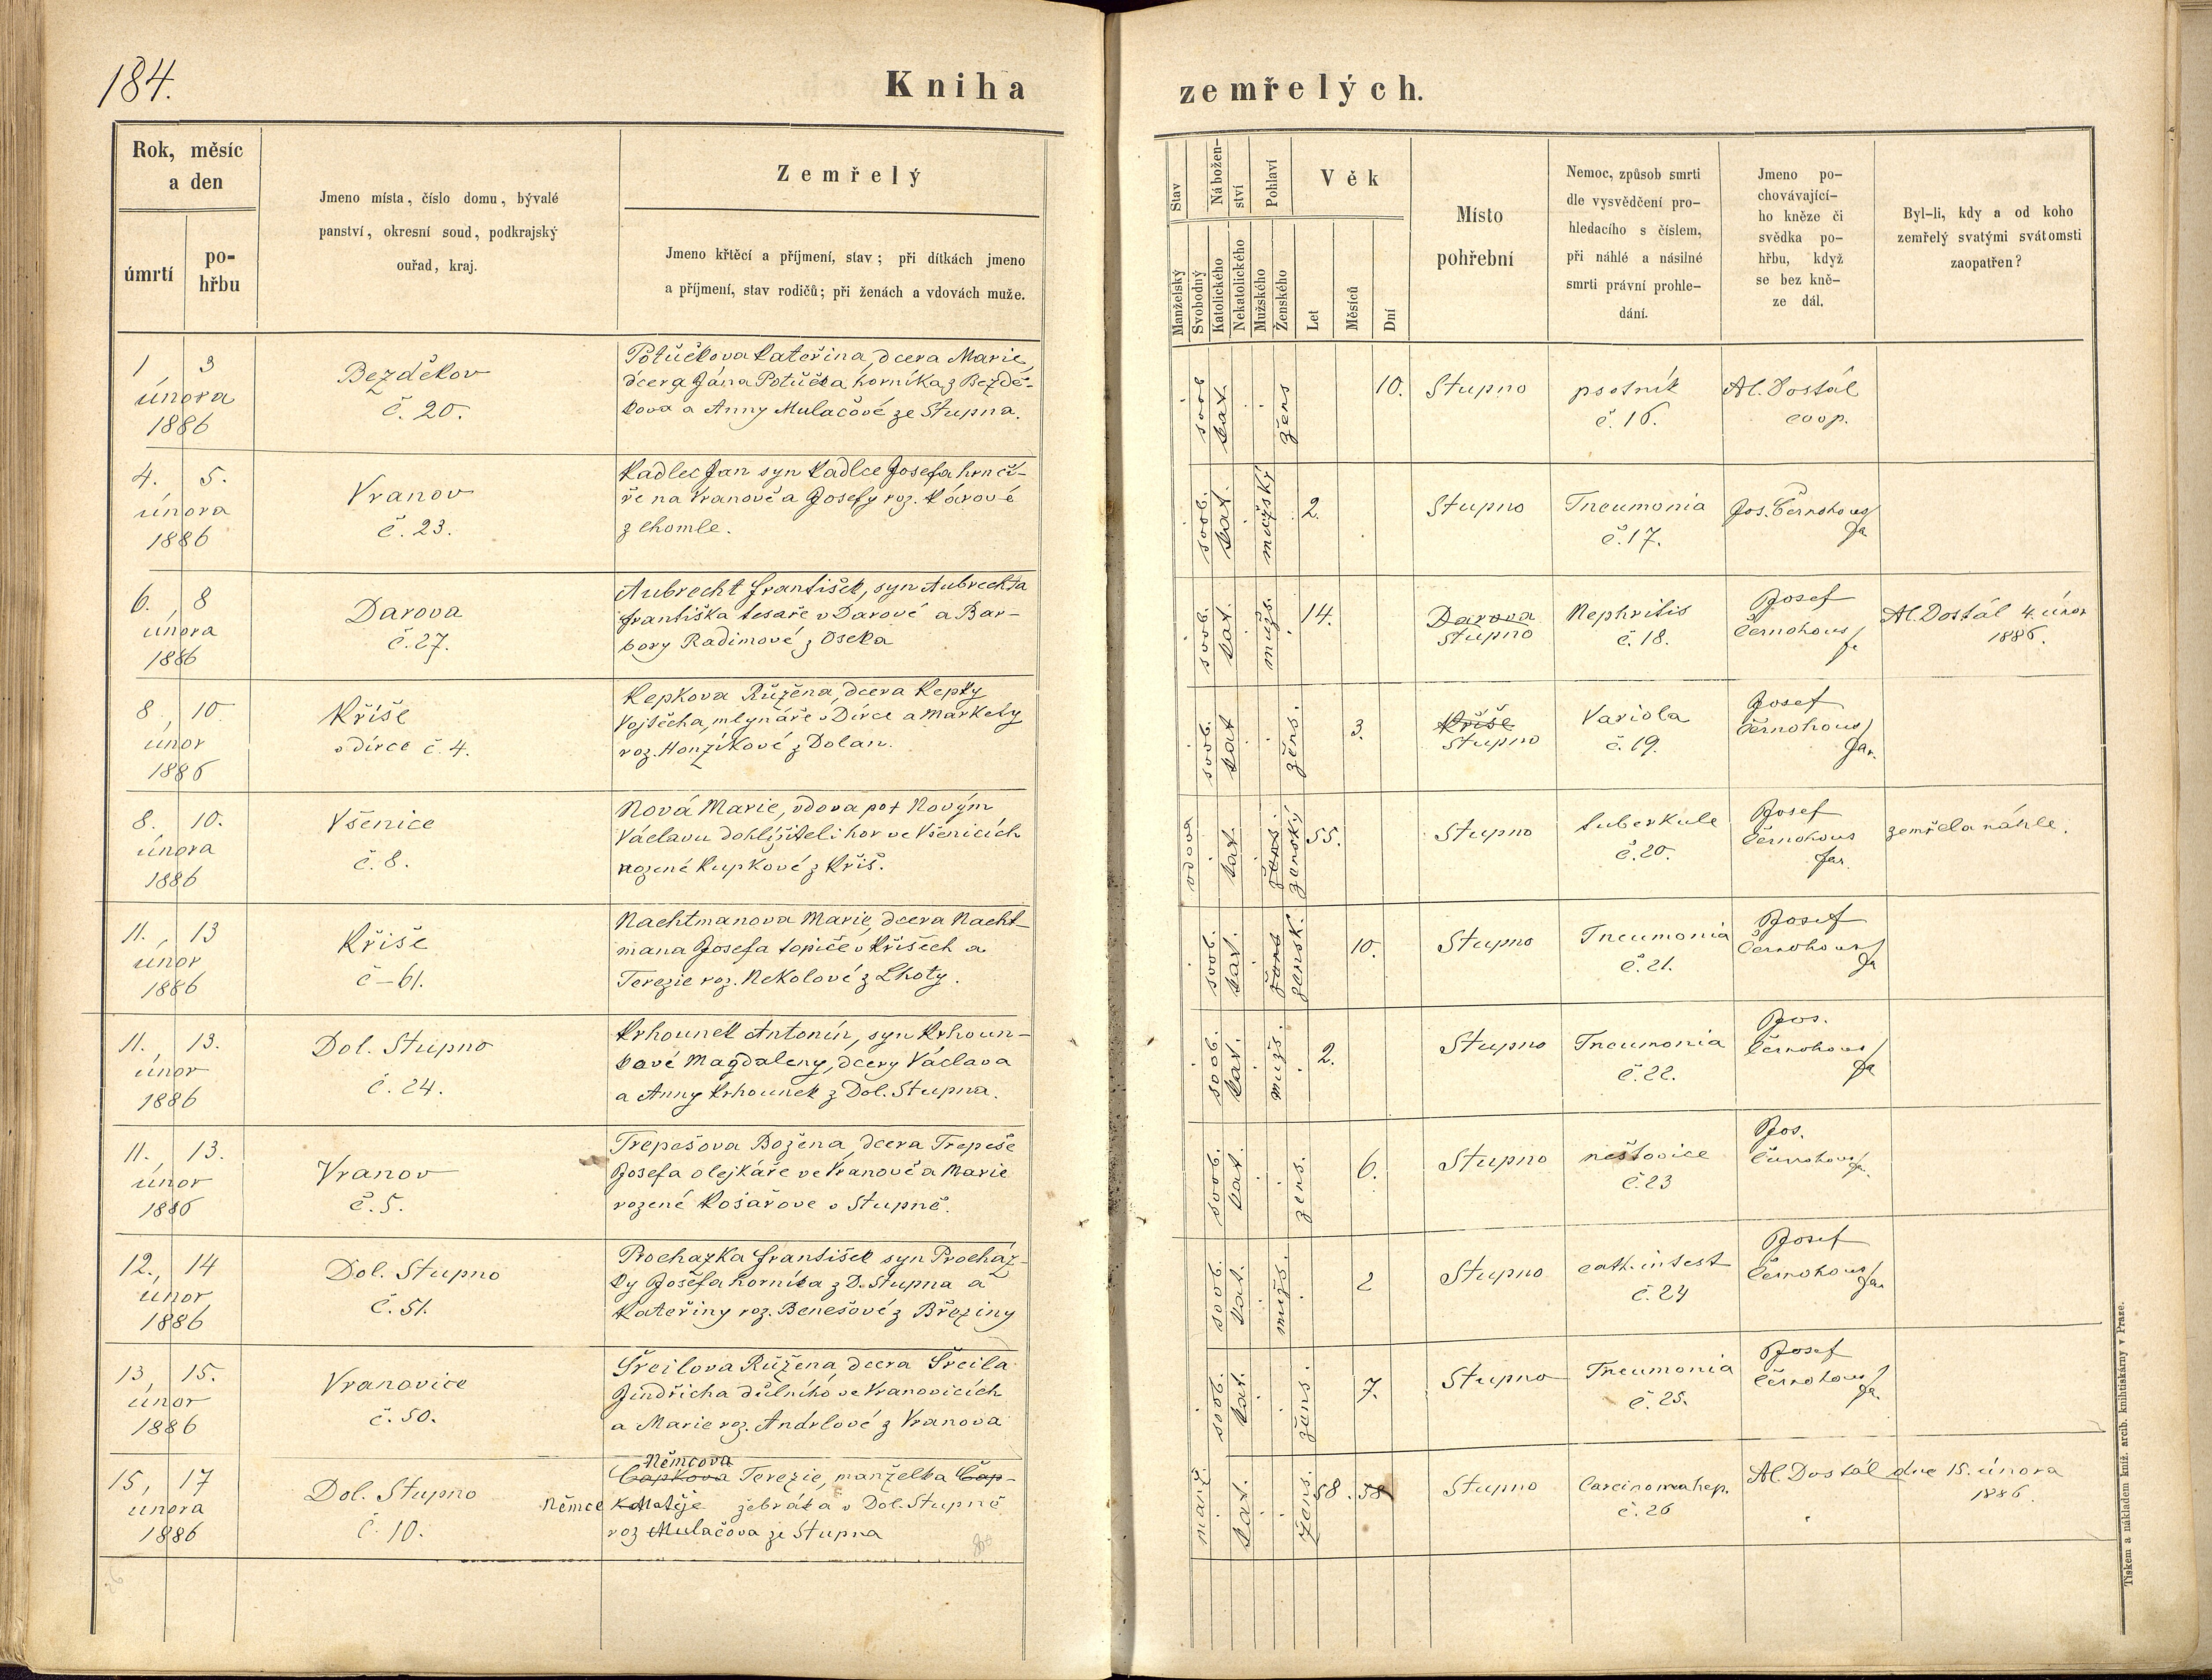 184.
Kniha zemřelých.
Rok, měsíc
a den
úmrtí
po-
hřbu
Jmeno místa, číslo domu, bývalé
panství, okresní soud, podkrajský
ouřad, kraj.
Zemřelý
Jmeno křtěcí a příjmení, stav; při dítkách jmeno
a příjmení, stav rodičů; při ženách a vdovách muže.
Stav
Manželský
Svobodný
Nábožen-
ství
Katolického
Nekatolického
Pohlaví
Mužského
Ženského
Věk
Let
Měsíců
Dní
Místo
pohřební
Nemoc, způsob smrti
dle vysvědčení pro-
hledacího s číslem,
při náhlé a násilné
smrti právní prohle-
dání.
Jmeno po-
chovávající-
ho kněze či
svědka po-
hřbu, když
se bez kně-
ze dál.
Byl-li, kdy a od koho
zemřelý svatými svátomsti
zaopatřen?
1 3
února
1886
Bezděkov
č. 20.
Potůčkova Kateřina, dcera Marie,
dcera Jána Potůčka horníka z Bezdě-
kova a Anny Mulačové ze Stupna.
svob
kat.
žens
10.
Stupno
psotník
č. 16.
Al. Dostál
coop.
4. 5.
února
1886
Vranov
č. 23.
Kadlec Jan syn Kadlce Josefa hrnčí-
ře na Vranově a Josefy roz. Kárové
z Chomle.
svob.
kat.
mužský
2.
Stupno
Pneumonia
č. 17.
Jos. Černohous
fa
6., 8
února
1886
Darova
č. 27.
Aubrecht František, syn Aubrechta
Františka tesaře v Darové a Bar-
bory Radimové z Oseka
svob.
kat.
mužs.
14.
Darova
Stupno
Nephritis
č. 18.
Josef
Černohous
fa
Al. Dostál 4. únor
1886.
8, 10
únor
1886
Kříše
v dírce č. 4.
Kepkova Růžena, dcera Kepky
Vojtěcha, mlynáře v Dírce a Markety
roz. Honzíkové z Dolan.
svob.
kat
žens.
3.
Kříše
Stupno
Variola
č. 19.
Josef
Černohous
far.
8. 10.
února
1886
Všenice
č. 8.
Nová Marie, vdova po † Novým
Václavu dohlížiteli hor ve Všenicích
rozené Kupkové z Kříš.
vdova
kat.
žens.
ženský
55.
Stupno
tuberkule
č. 20.
Josef
Černohous
far.
zemřela náhle.
11., 13
únor
1886
Kříše
č – 61.
Nachtmanova Marie, dcera Nacht-
mana Josefa topiče v Kříšech a
Terezie roz. Nekolové z Lhoty.
svob.
kat.
žens
žensk.
10.
Stupno
Pneumonia
č. 21.
Josef
Černohous
fa
11., 13.
únor
1886
Dol. Stupno
č. 24.
Krhounek Antonín, syn Krhoun-
kové Magdaleny, dcery Václava
a Anny Krhounek z Dol. Stupna.
svob.
kat.
mužs.
2.
Stupno
Pneumonia
č. 22.
Jos.
Černohous
fa
11. 13.
únor
1886
Vranov
č. 5.
Trepešova Božena, dcera Trepeše
Josefa olejkáře ve Vranově a Marie
rozené Košařove v Stupně.
svob.
kat.
žens.
6.
Stupno
neštovice
č. 23
Jos.
Černohous
fa.
12., 14
únor
1886
Dol. Stupno
č. 51.
Prochazka František syn Procház-
ky Josefa horníka z D. Stupna a
Kateřiny roz. Benešové z Březiny
svob.
kat.
mužs.
2
Stupno
cath. intest
č. 24
Josef
Černohous
far
13, 15.
únor
1886
Vranovice
č. 50.
Šreilova Růžena dcera Šreila
Jindřicha důlního ve Vranovicích
a Marie roz. Andrlové z Vranova
svob.
kat.
žens.
7.
Stupno
Pneumonia
č. 25.
Josef
Černohous
fa.
15, 17
února
1886
Dol. Stupno
č. 10.
Němcova
Čapkova Terezie, manželka Čap-
Němce ka Matěje žebráka v Dol. Stupně
roz Mulačova ze Stupna
manž.
kat.
žens.
58. 58
Stupno
Carcinoma hep.
č. 26
Al. Dostál dne 15. února
1886.
Tiskem a nákladem kníž. arcib. knihtiskárny v Praze.